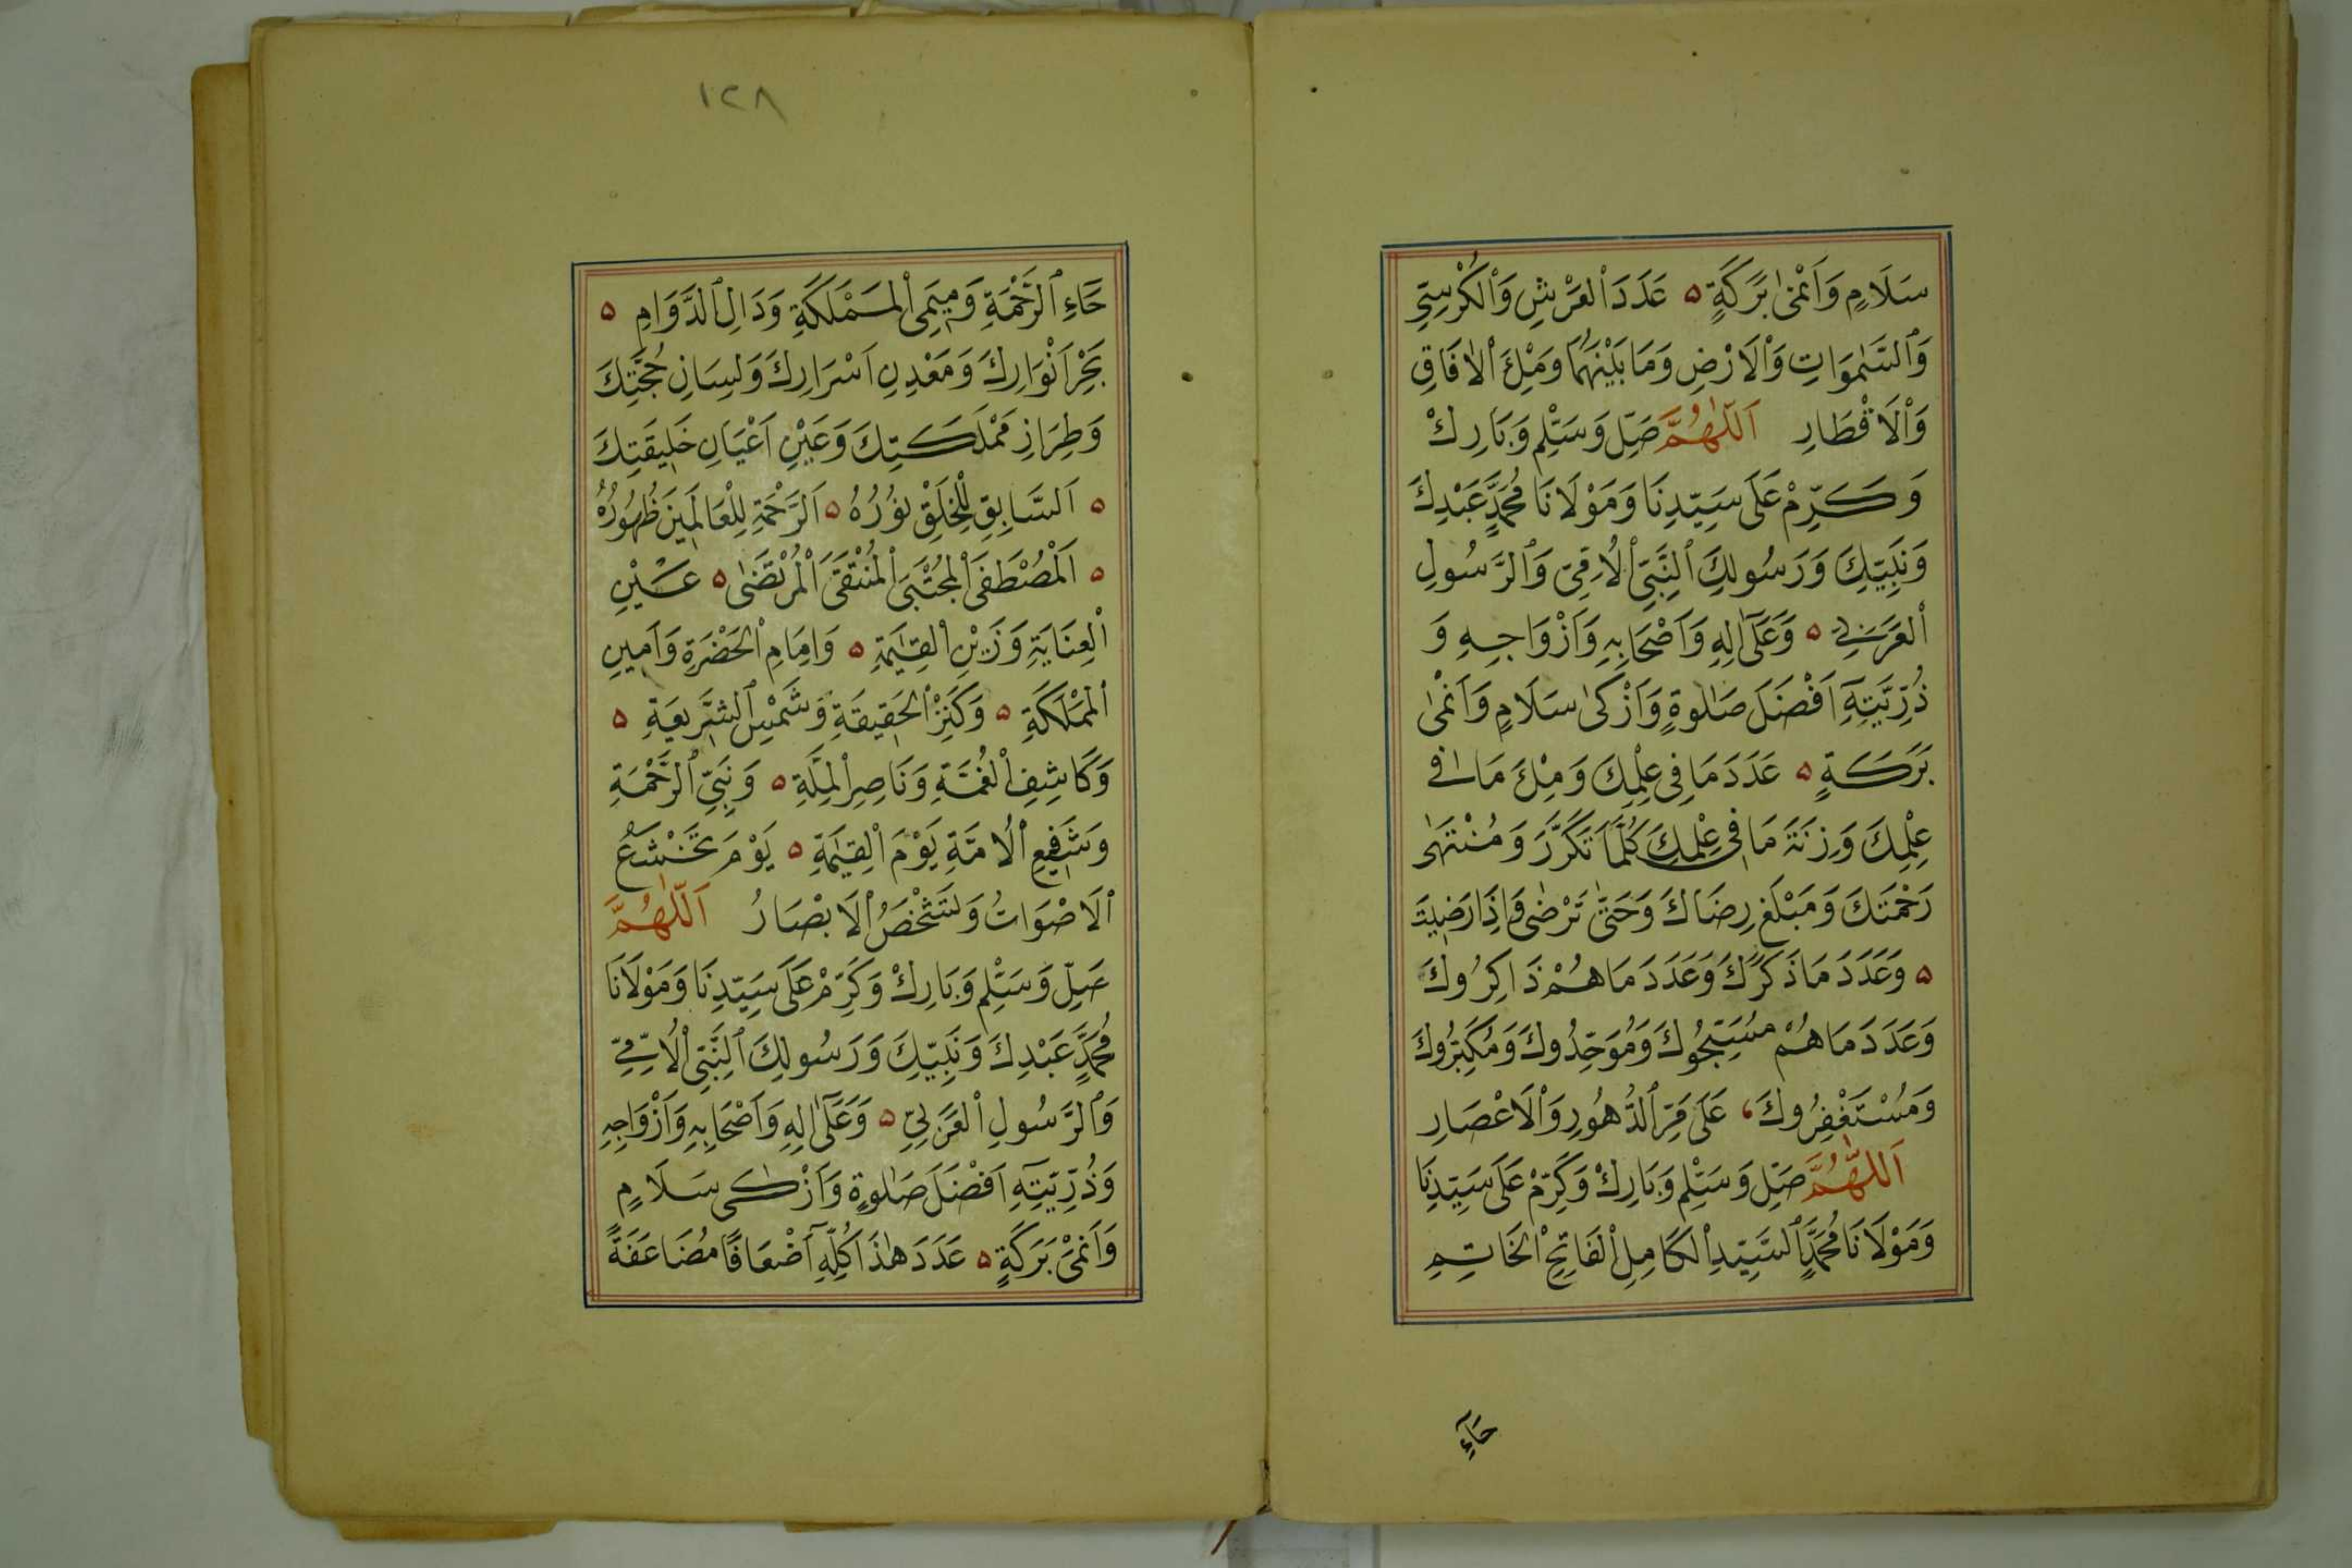 سَلَامٍ وَاَنْمٰى بَرَكَةٍ ۵ عَدَدَ الْعَرْشِ وَالْكُرْسِيِّ
وَالسَّمٰوَاتِ وَالْاَرْضِ وَمَا بَيْنَهُمَا وَمِلْءَ الْاٰفَاقِ
وَالْاَقْطَارِ اَللّٰهُمَّ صَلِّ وَسَلِّمْ وَبَارِكْ
وَكَرِّمْ عَلٰى سَيِّدِنَا وَمَوْلَانَا مُحَمَّدٍ عَبْدِكَ
وَنَبِيِّكَ وَرَسُولِكَ النَّبِيِّ الْاُمِّيِّ وَالرَّسُولِ
الْعَرَبِيِّ ۵ وَعَلٰٓى اٰلِهِ وَاَصْحَابِهِ وَاَزْوَاجِهِ وَ
ذُرِّيَّتِهِٓ اَفْضَلَ صَلٰوةٍ وَاَزْكٰى سَلَامٍ وَاَنْمٰى
بَرَكَةٍ ۵ عَدَدَ مَا فِى عِلْمِكَ وَمِلْءَ مَا فِى
عِلْمِكَ وَزِنَةَ مَا فِى عِلْمِكَ كُلَّمَا تَكَرَّرَ وَمُنْتَهٰى
رَحْمَتِكَ وَمَبْلَغَ رِضَاكَ وَحَتّٰى تَرْضٰى وَاِذَا رَضِيتَ
۵ وَعَدَدَ مَا ذَكَرَكَ وَعَدَدَ مَا هُمْ ذَاكِرُوكَ
وَعَدَدَ مَا هُمْ مُسَبِّحُوكَ وَمُوَحِّدُوكَ وَمُكَبِّرُوكَ
وَمُسْتَغْفِرُوكَ، عَلٰى مَرِّ الدُّهُورِ وَالْاَعْصَارِ
اَللّٰهُمَّ صَلِّ وَسَلِّمْ وَبَارِكْ وَكَرِّمْ عَلٰى سَيِّدِنَا
وَمَوْلَانَا مُحَمَّدٍ السَّيِّدِ الْكَامِلِ الْفَاتِحِ الْخَاتِمِ
حَآءِ
١٢٨
حَٓاءِ الرَّحْمَةِ وَمِيمَىِ الْمَمْلَكَةِ وَدَالِ الدَّوَامِ ۵
بَحْرِ اَنْوَارِكَ وَمَعْدِنِ اَسْرَارِكَ وَلِسَانِ حُجَّتِكَ
وَطِرَازِ مَمْلَكَتِكَ وَعَيْنِ اَعْيَانِ خَلِيقَتِكَ
۵ اَلسَّابِقِ لِلْخَلْقِ نُورُهُ ۵ اَلرَّحْمَةِ لِلْعَالَمِينَ ظُهُورُهُ
۵ اَلْمُصْطَفَى الْمُجْتَبَى الْمُنْتَقَى الْمُرْتَضٰى ۵ عَيْنِ
الْعِنَايَةِ وَزَيْنِ الْقِيٰمَةِ ۵ وَاِمَامِ الْحَضْرَةِ وَاَمِينِ
الْمَمْلَكَةِ ۵ وَكَنْزِ الْحَقِيقَةِ وَشَمْسِ الشَّرِيعَةِ ۵
وَكَاشِفِ الْغُمَّةِ وَنَاصِرِ الْمِلَّةِ ۵ وَنَبِيِّ الرَّحْمَةِ
وَشَفِيعِ الْاُمَّةِ يَوْمَ الْقِيٰمَةِ ۵ يَوْمَ تَخْشَعُ
الْاَصْوَاتُ وَتَشْخَصُ الْاَبْصَارُ اَللّٰهُمَّ
صَلِّ وَسَلِّمْ وَبَارِكْ وَكَرِّمْ عَلٰى سَيِّدِنَا وَمَوْلَانَا
مُحَمَّدٍ عَبْدِكَ وَنَبِيِّكَ وَرَسُولِكَ النَّبِيِّ الْاُمِّيِّ
وَالرَّسُولِ الْعَرَبِيِّ ۵ وَعَلٰٓى اٰلِهِ وَاَصْحَابِهِ وَاَزْوَاجِهِ
وَذُرِّيَّتِهِٓ اَفْضَلَ صَلٰوةٍ وَاَزْكٰى سَلَامٍ
وَاَنْمٰى بَرَكَةٍ ۵ عَدَدَ هٰذَا كُلِّهِٓ اَضْعَافًا مُضَاعَفَةً